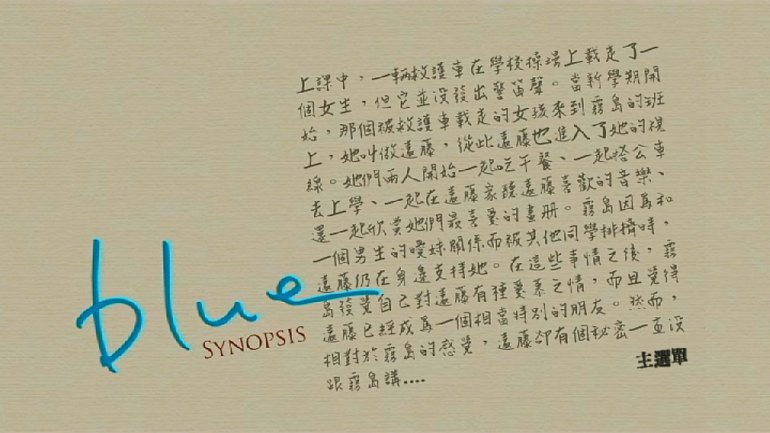 上課中，一輛救護車在學校操場上載走了一
個女生，但它並沒發出警笛聲。當新學期開
始，那個被救護車載走的女孩來到霧島的班
上，她叫做遠藤，從此遠藤也進入了她的視
線。她們兩人開始一起吃午餐、一起搭公車
去上學、一起在遠藤家聽遠藤喜歡的音樂、
還一起欣賞她們最喜愛的畫冊。霧島因為和
一個男生的曖昧關係而被其他同學排擠時，
遠藤仍在身邊支持她。在這些事情之後，霧
島發覺自己對遠藤有種愛慕之情，而且覺得
遠藤已經成為一個相當特別的朋友。然而，
相對於霧島的感覺，遠藤卻有個祕密一直沒
跟霧島講....
blue
SYNOPSIS
主選單